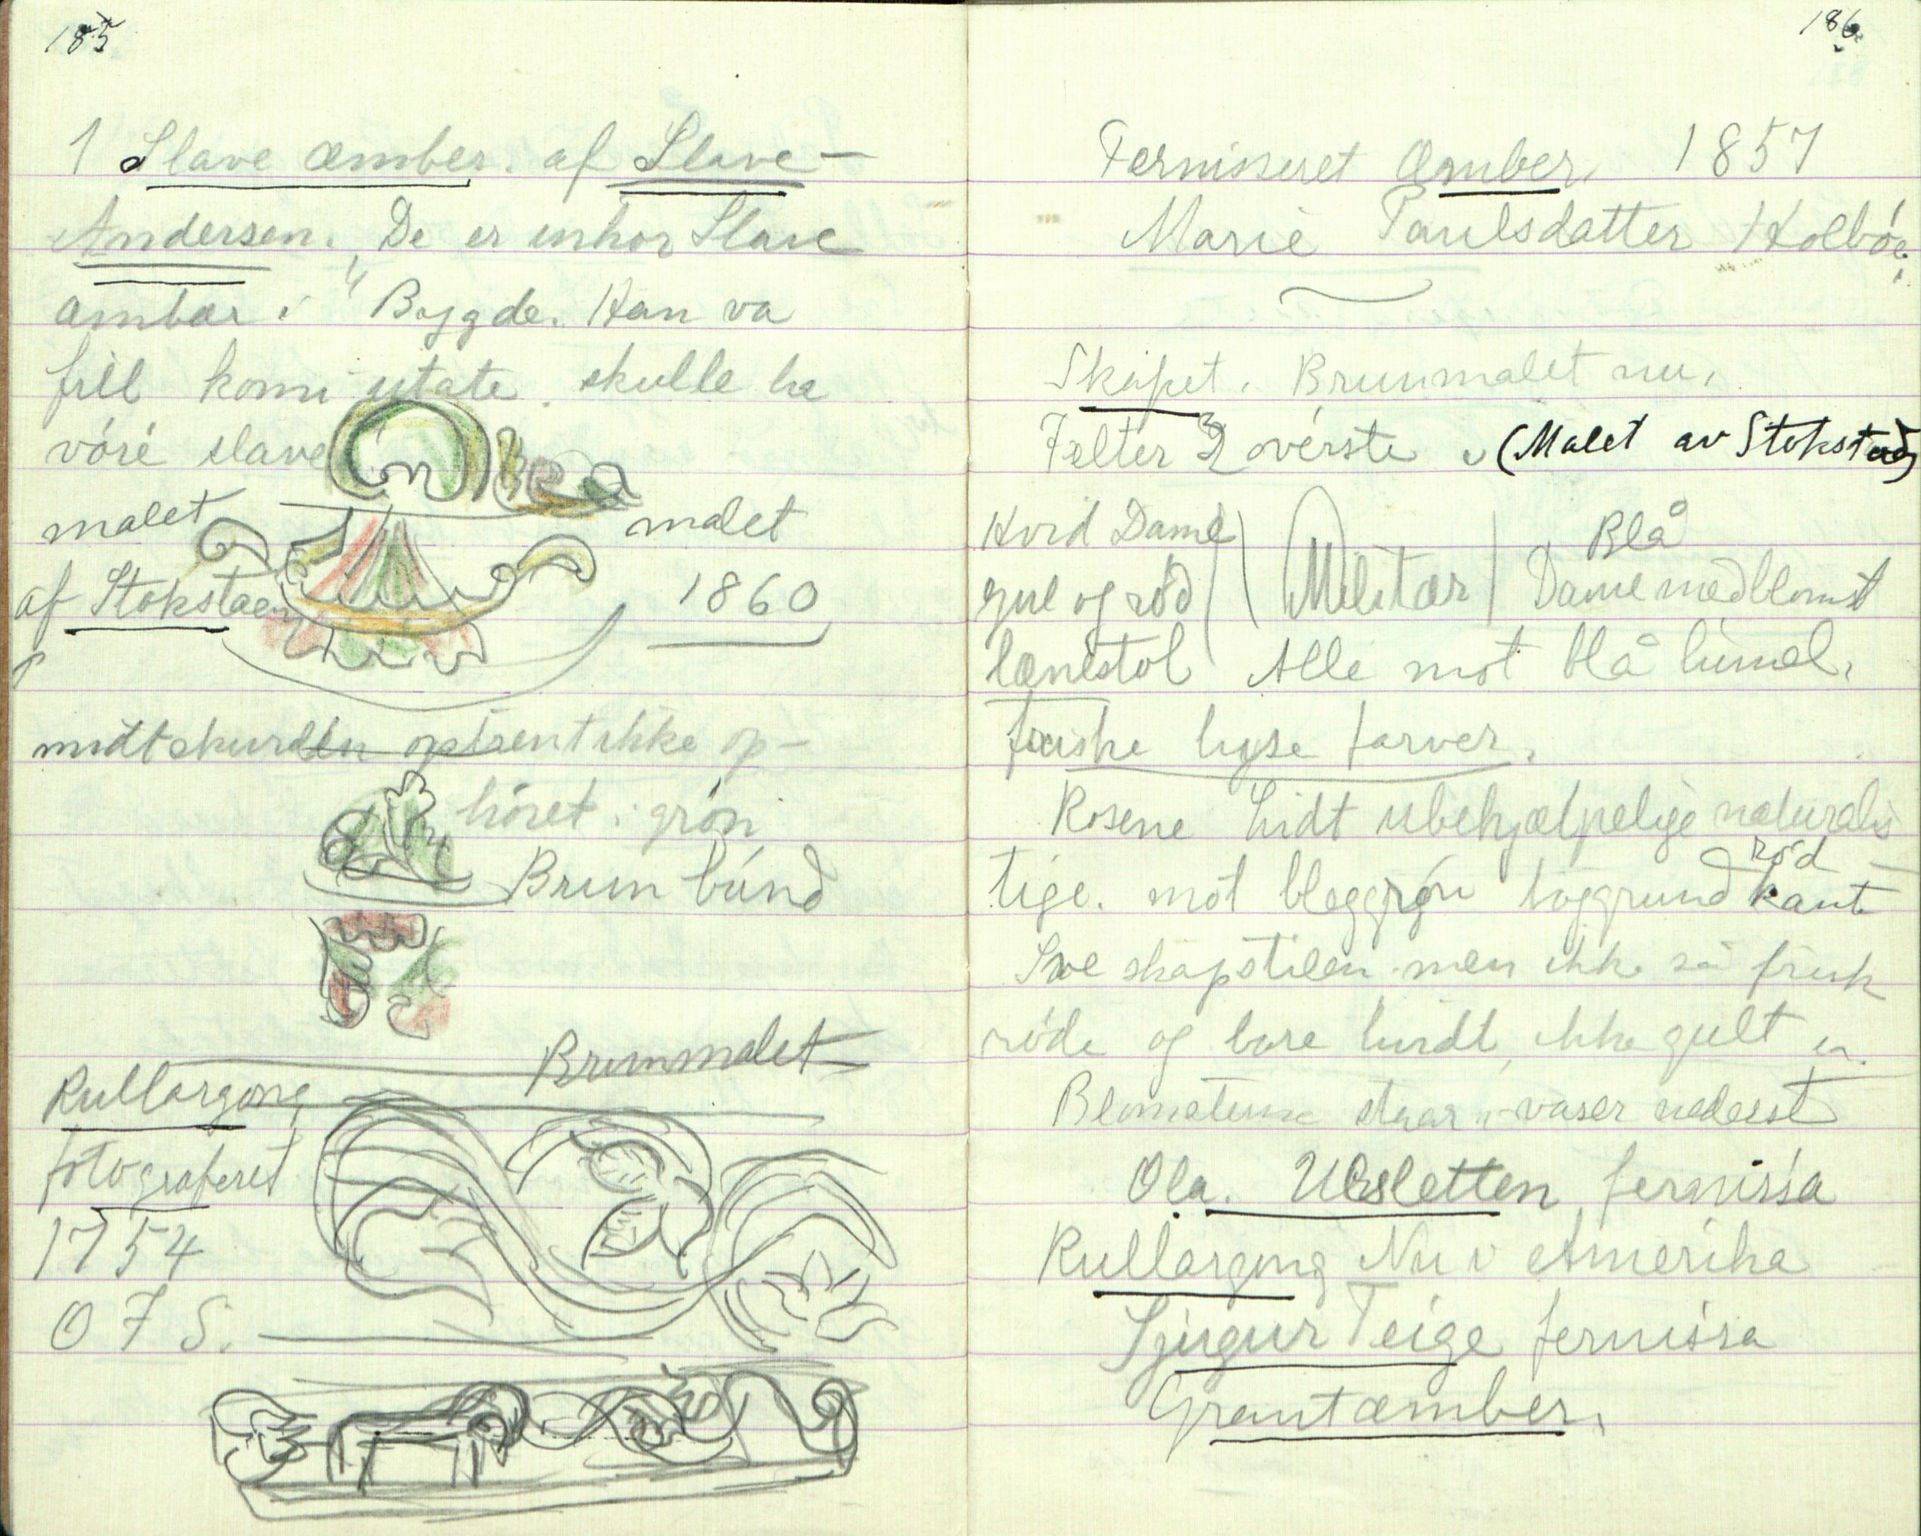 185
1 Slave æmber. af Slave-
Andersen. De er inhor Slave
ambar i Bygde. Han va
fill komi utate. skulle ha
vóré slave
malet
malet
af Stokstaen
1860
midtskurden optrent ikke op-
hóret i grón
Brun búnd
Brunmalet
Kullargong
fotograferet
1754
O F S.
186
Fernisseret Æmber. 1857
Marie Paulsdatter Kolbó
Skapet. Brunmalet nu.
Felter 3 óverste (Malet av Stokstad)
Hvid Dame
Militær
Blå
gul og ród
Dame med blomst
lænestol Alle mot blå himel.
friske lyse farver.
Rosene lidt ubehjælpelige naturalis
tige. mot bleggrón baggrund ród kant
Sve skapstilen men ikke så frisk
róde og bare hvidt, ikke gult
Blomsterne staar i vaser nederst
Ola. Ulsletten fernissa
Kullargong Nu i Amerika
Sjugur Teige fernissa
Grautæmber.